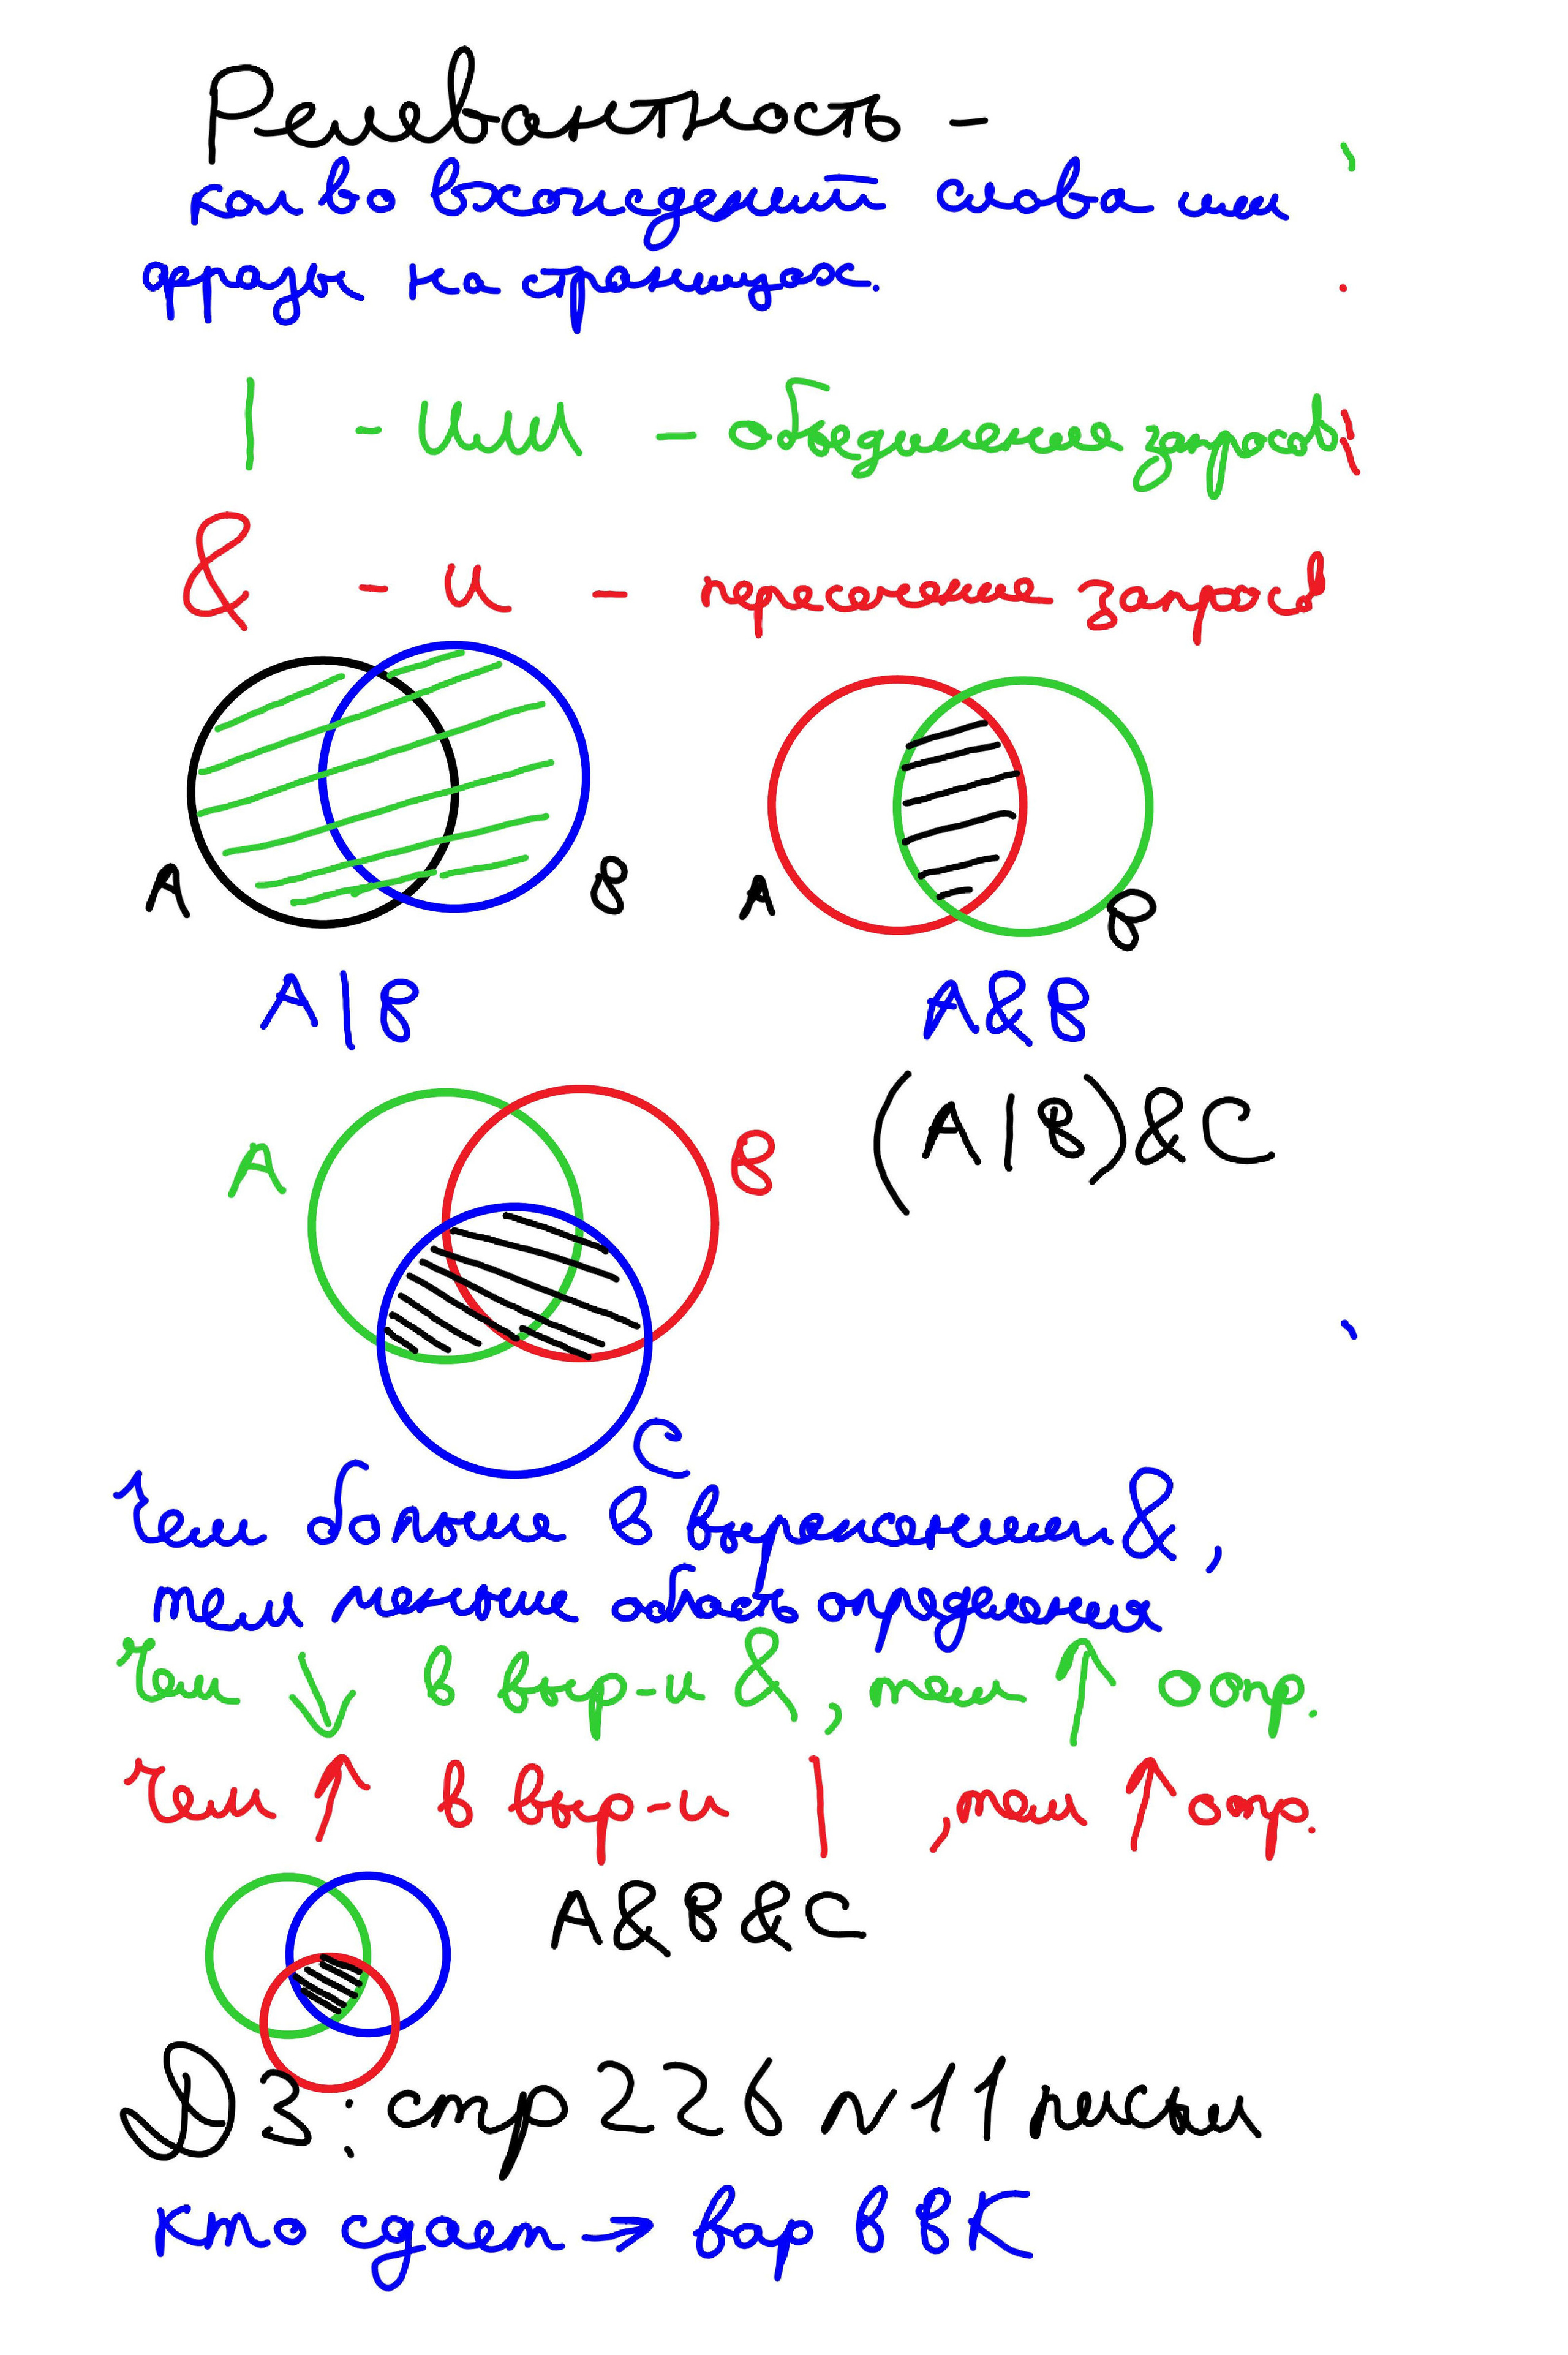 Релевантность -
кол во вхождений слова или
фразы на страницах.
| - или - объединение запросов
& - и - пересечение запросов
A B A B
A|B A&B
A B (A|B)&C
C
Чем больше в выражении &,
тем меньше область определения
Чем ↓ в выр-и &, тем ↑ о опр.
Чем ↑ в выр-и | , тем ↑ опр.
A&B&C
ДЗ: стр 226 N 11 письм
Кто сдает → вар в ВК